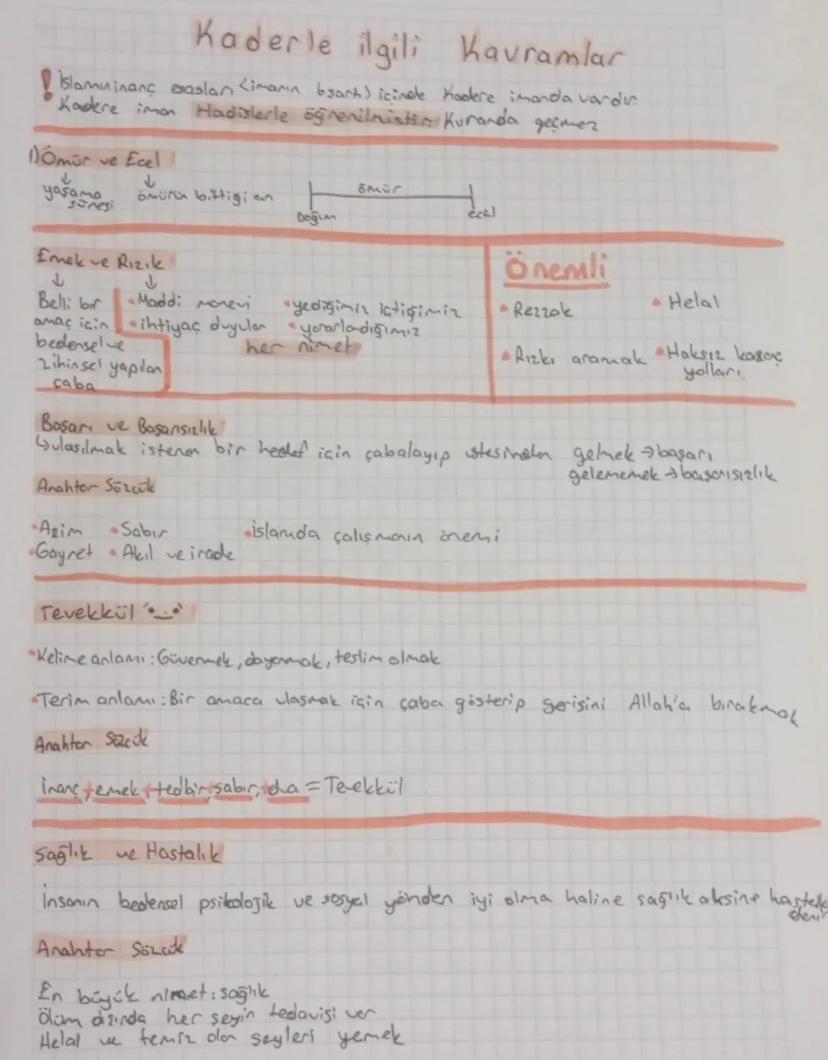 Kaderle ilgili Kavramlar
! İslamın inanç esasları <imanın 6 şartı> içinde Kadere imanda vardır.
Kadere iman Hadislerle öğrenilmiştir. Kuranda geçmez
1) Ömür ve Ecel
↓ ↓
yaşama süresi ömürün bittiği an
ömür
Doğum ecel
Emek ve Rızık
↓ ↓
Belli bir amaç için bedensel ve zihinsel yapılan çaba
• Maddi manevi • yediğimiz içtiğimiz
• ihtiyaç duyulan • yararladığımız
her nimet
Önemli
• Rezzak • Helal
• Rızkı aramak • Haksız kazanç yolları
Başarı ve Başarısızlık
↳ ulaşılmak istenen bir hedef için çabalayıp üstesinden gelmek → başarı
gelememek → başarısızlık
Anahtar Sözcük
• Azim • Sabır • islamda çalışmanın önemi
• Gayret • Akıl ve irade
Tevekkül
• Kelime anlamı: Güvenmek, dayanmak, teslim olmak
• Terim anlamı: Bir amaca ulaşmak için çaba gösterip gerisini Allah'a bırakmak
Anahtar Sözcük
inanç + emek + tedbir, sabır, dua = Tevekkül
Sağlık ve Hastalık
İnsanın bedensel psikolojik ve sosyal yönden iyi olma haline sağlık aksine hastalık
denir
Anahtar Sözcük
En büyük nimet: sağlık
Ölüm dışında her şeyin tedavisi var
Helal ve temiz olan şeyleri yemek